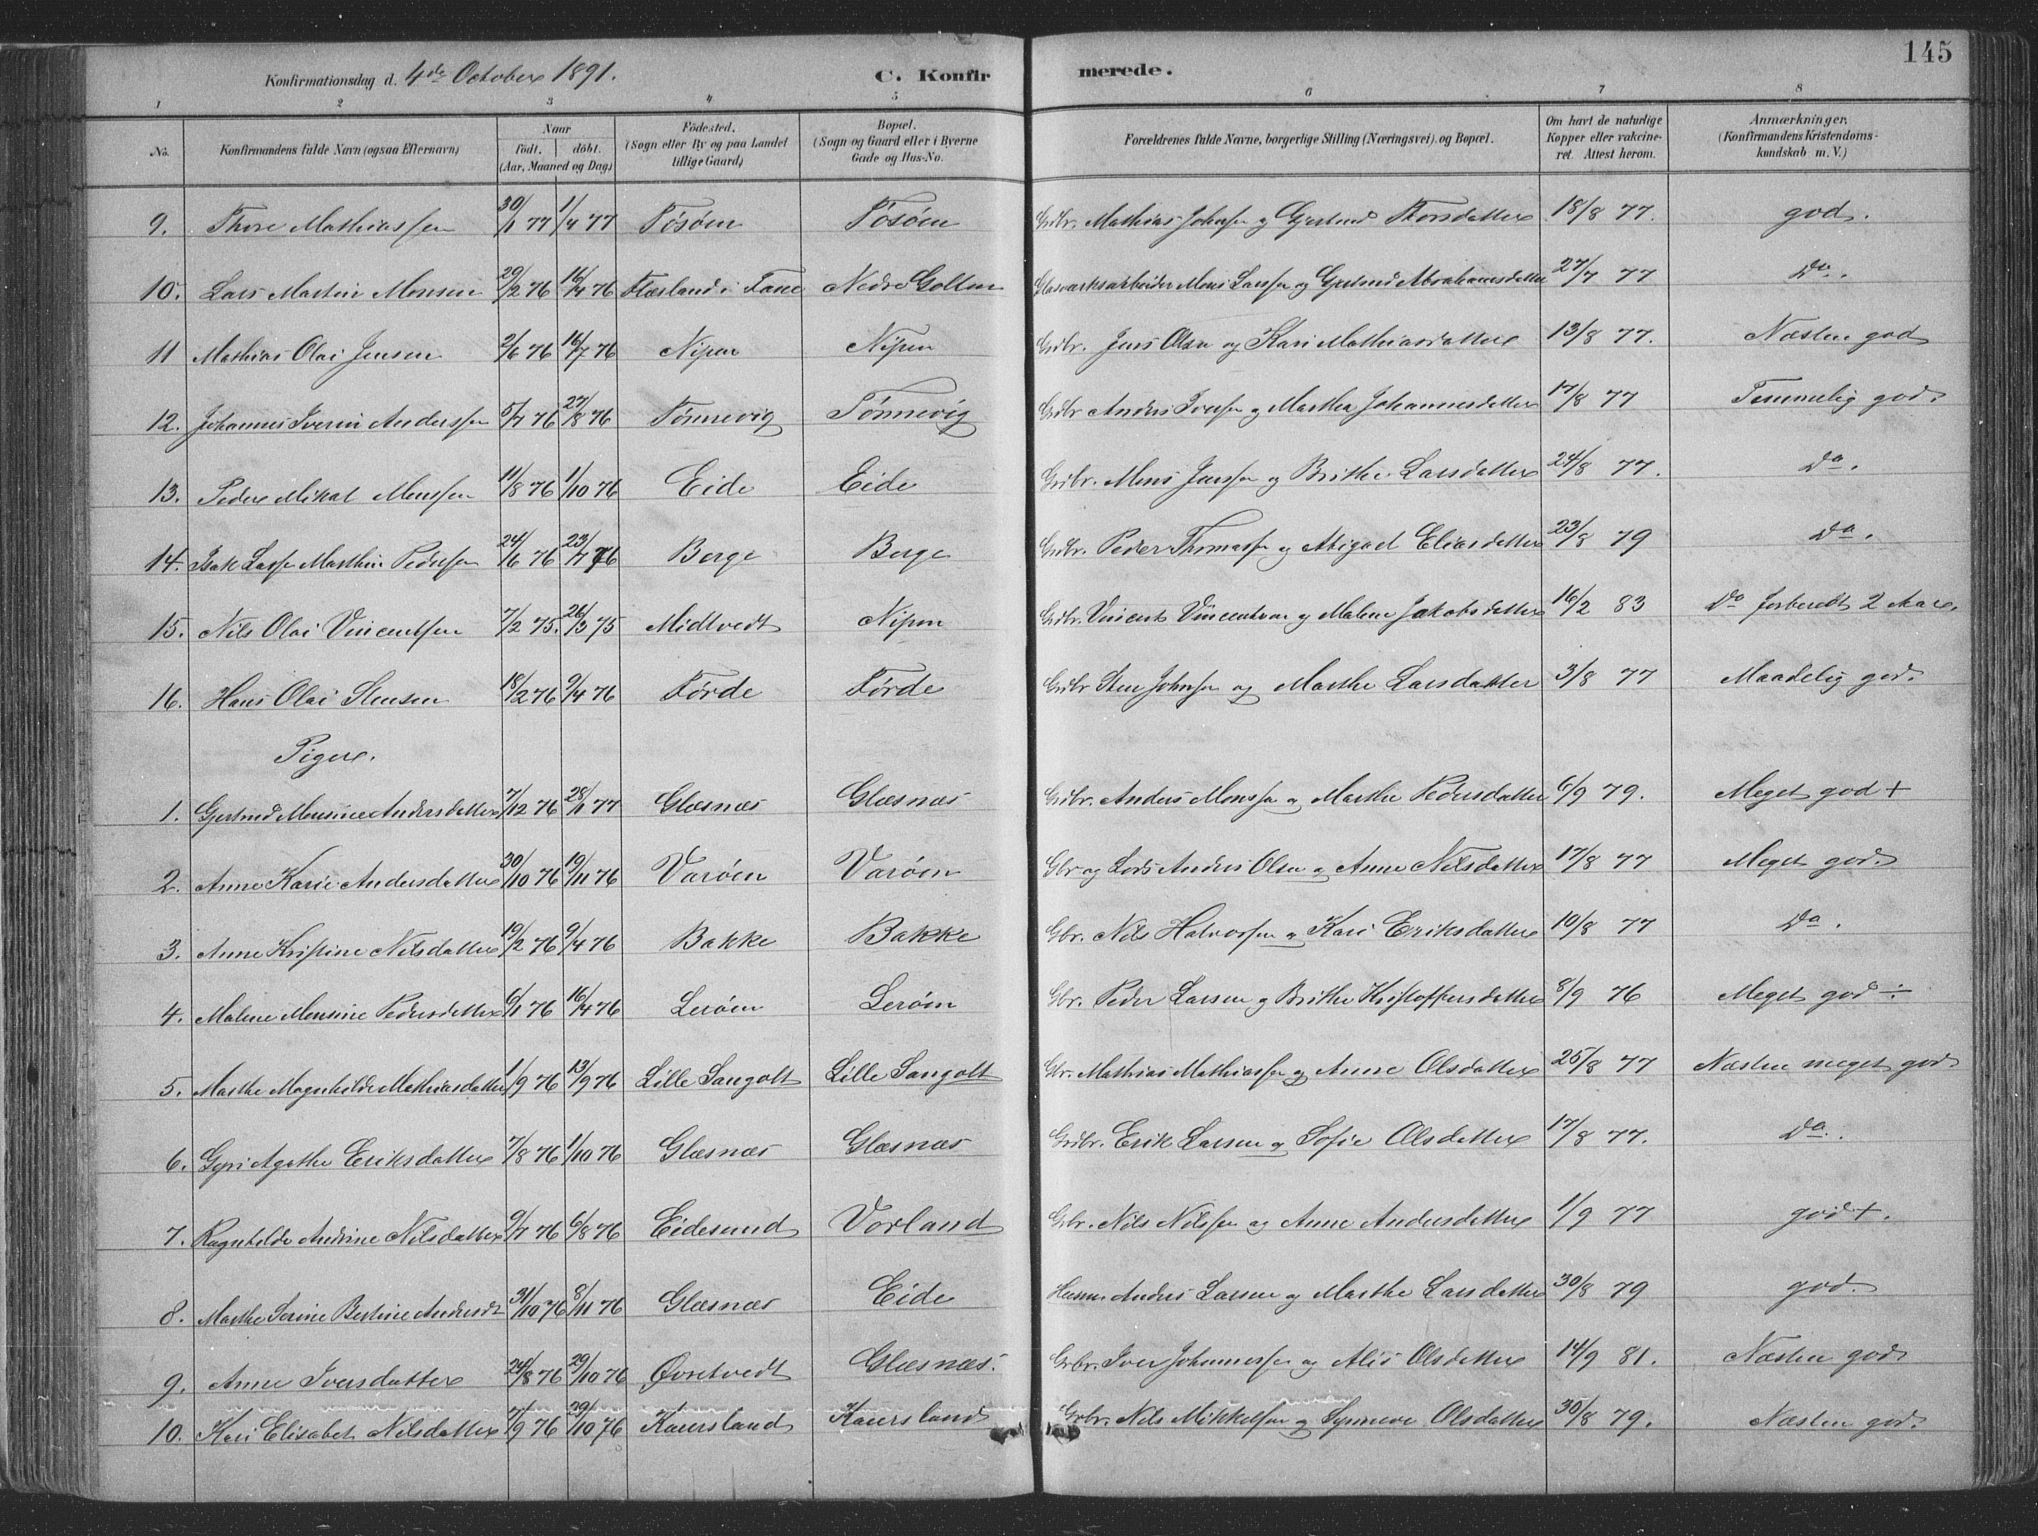 145
Konfirmationsdag d. 4de October 1891. C. Konfirmerede.
1 2 3 4 5 6 7 8
No. Konfirmandens fulde Navn (ogsaa Efternavn) Naar födt. döbt. (Aar, Maaned og Dag) Födested. (Sogn eller By og paa Landet tillige Gaard) Bopæl. (Sogn og Gaard eller i Byerne Gade og Hus-No. Forældrenes fulde Navne, borgerlige Stilling (Næringsvei) og Bopæl. Om havt de naturlige Kopper eller vakcineret. Attest herom. Anmærkninger. (Konfirmandens Kristendomskundskab m. V.)
9. Thore Mathiassen 30/1 77 1/4 77 Tösöen Tösöen Grdbr. Mathias Johnsen og Gjertrud Thorsdatter 18/8 77. god.
10. Lars Martin Monsen 29/2 76 16/4 76 Flæsland i Fane Nedre Golten Glasværksarbeider Mons Larssen og Gjertrud Abrahamsdatter 27/7 77 Do.
11 Mathias Olai Jensen 2/6 76 16/7 76 Nipen Nipen Grdbr. Jens Olsen og Kari Mathiasdatter 13/8 77. Næsten god
12. Johannes Iverin Anderssen 5/7 76 27/8 76 Tönnevig Tönnevig Grdbr Anders Iversen og Martha Johannesdatter 17/8 77 Temmelig god.
13. Peder Mikal Monssen 11/8 76 1/10 76 Eide Eide Grdbr. Mons Jenssen og Brithe Larsdatter 24/8 77. Do.
14. Isak Lasse Marthin Pedersen 24/6 76 23/7 76 Berge Berge Grdbr. Peder Thomassen og Abigael Eliasdatter 23/8 79 Do.
15. Nils Olai Vincentsen 7/2 75. 26/3 75 Midtvedt Nipen Grdbr. Vincents Vincentsen og Malene Jakobsdatter 16/2 83 Do forberedt 2 Aar.
16. Hans Olai Stensen 18/2 76 9/4 76 Förde Förde Grdbr Sten Johnsen og Marthe Larsdatter 3/8 77 Maadelig god.
Piger.
1. Gjertrud Monsine Andersdatter 7/12 76 28/1 77 Glæsnæs Glæsnæs Grdbr. Anders Monssen og Marthe Pedersdatter 6/9 79. Meget god +
2. Anne Karie Andersdatter 30/10 76 19/11 76 Varöen Varöen Gbr og Lods Anders Olsen og Anne Nilsdatter 17/8 77 Meget god.
3. Anne Kristine Nilsdatter 19/2 76 9/4 76 Bakke Bakke Gbr. Nils Halvorsen og Kari Eriksdatter 10/8 77 Do.
4. Malene Monsine Pedersdatter 6/1 76 16/4 76 Leröen Leröen Gbr. Peder Larsen og Brithe Kristoffersdatter 8/9 76 Meget god ÷
5. Marthe Magnhilde Mathiasdatter 1/9 76 13/9 76 Lille Sangolt Lille Sangolt Gbr. Mathias Mathiassen og Anne Olsdatter 25/8 77 Næsten meget god
6. Gyri Agathe Eriksdatter 7/8 76 1/10 76 Glæsnæs Glæsnæs Grdbr. Erik Larsen og Sofie Olsdatter 17/8 77. Do.
7. Ragnhilde Andrine Nilsdatter 9/7 76 6/8 76 Eidesund Vorland Grbr. Nils Nilssen og Anne Andersdatter 1/9 77 god +.
8. Marthe Serine Bertine Andersdt 31/10 76 8/11 76 Glæsnæs Eide Husm. Anders Larsen og Marthe Larsdatter 30/8 79 god.
9. Anne Iversdatter 24/8 76 29/10 76 Övretvedt Glæsnæs. Grbr. Iver Johannessen og Alis Olsdatter 14/9 81. Næsten god
10. Kari Elisabet Nilsdatter 7/9 76 29/10 76 Kaursland Kaursland Grbr. Nils Mikkelsen og Synneve Olsdatter 30/8 79. Næsten god.